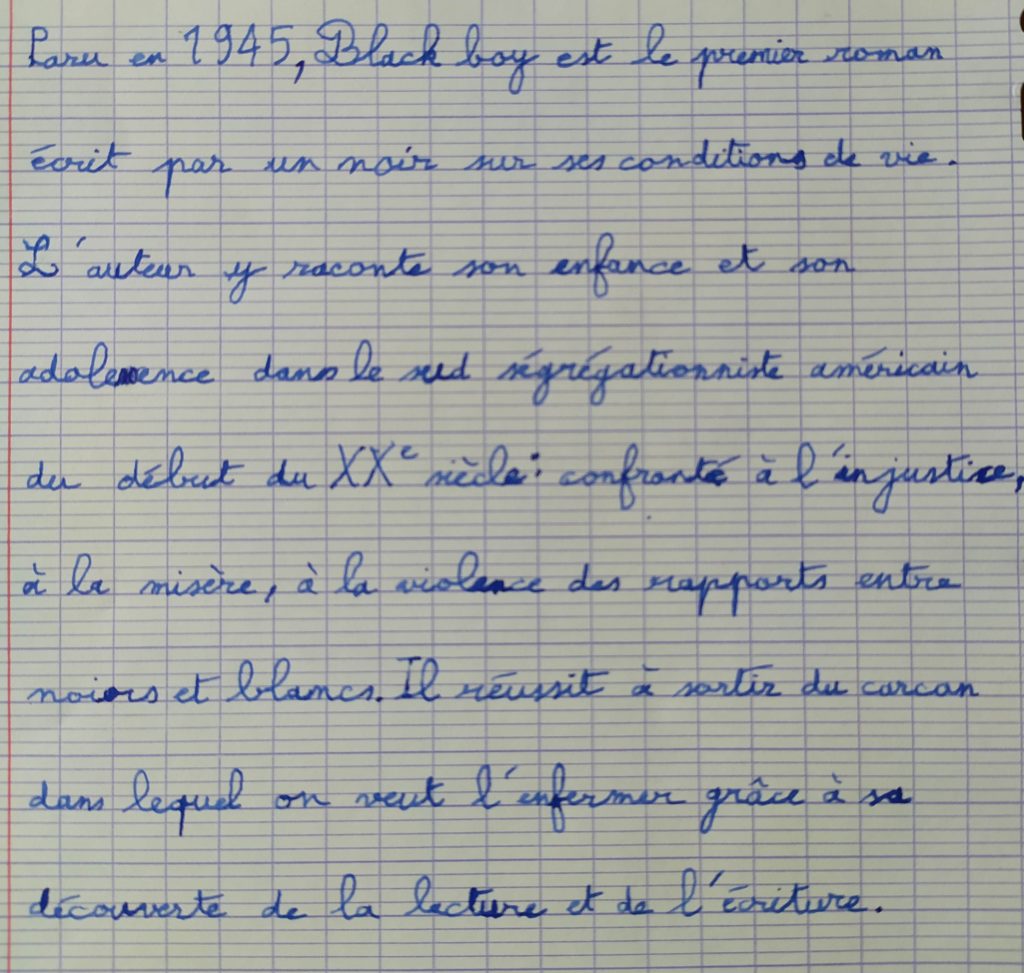 Paru en 1945, Black boy est le premier roman
écrit par un noir sur ses conditions de vie.
L'auteur y raconte son enfance et son
adolescence dans le sud ségrégationniste américain
du début du XXe siècle : confronté à l'injustice,
à la misère, à la violence des rapports entre
noirs et blancs. Il réussit à sortir du carcan
dans lequel on veut l'enfermer grâce à sa
découverte de la lecture et de l'écriture.